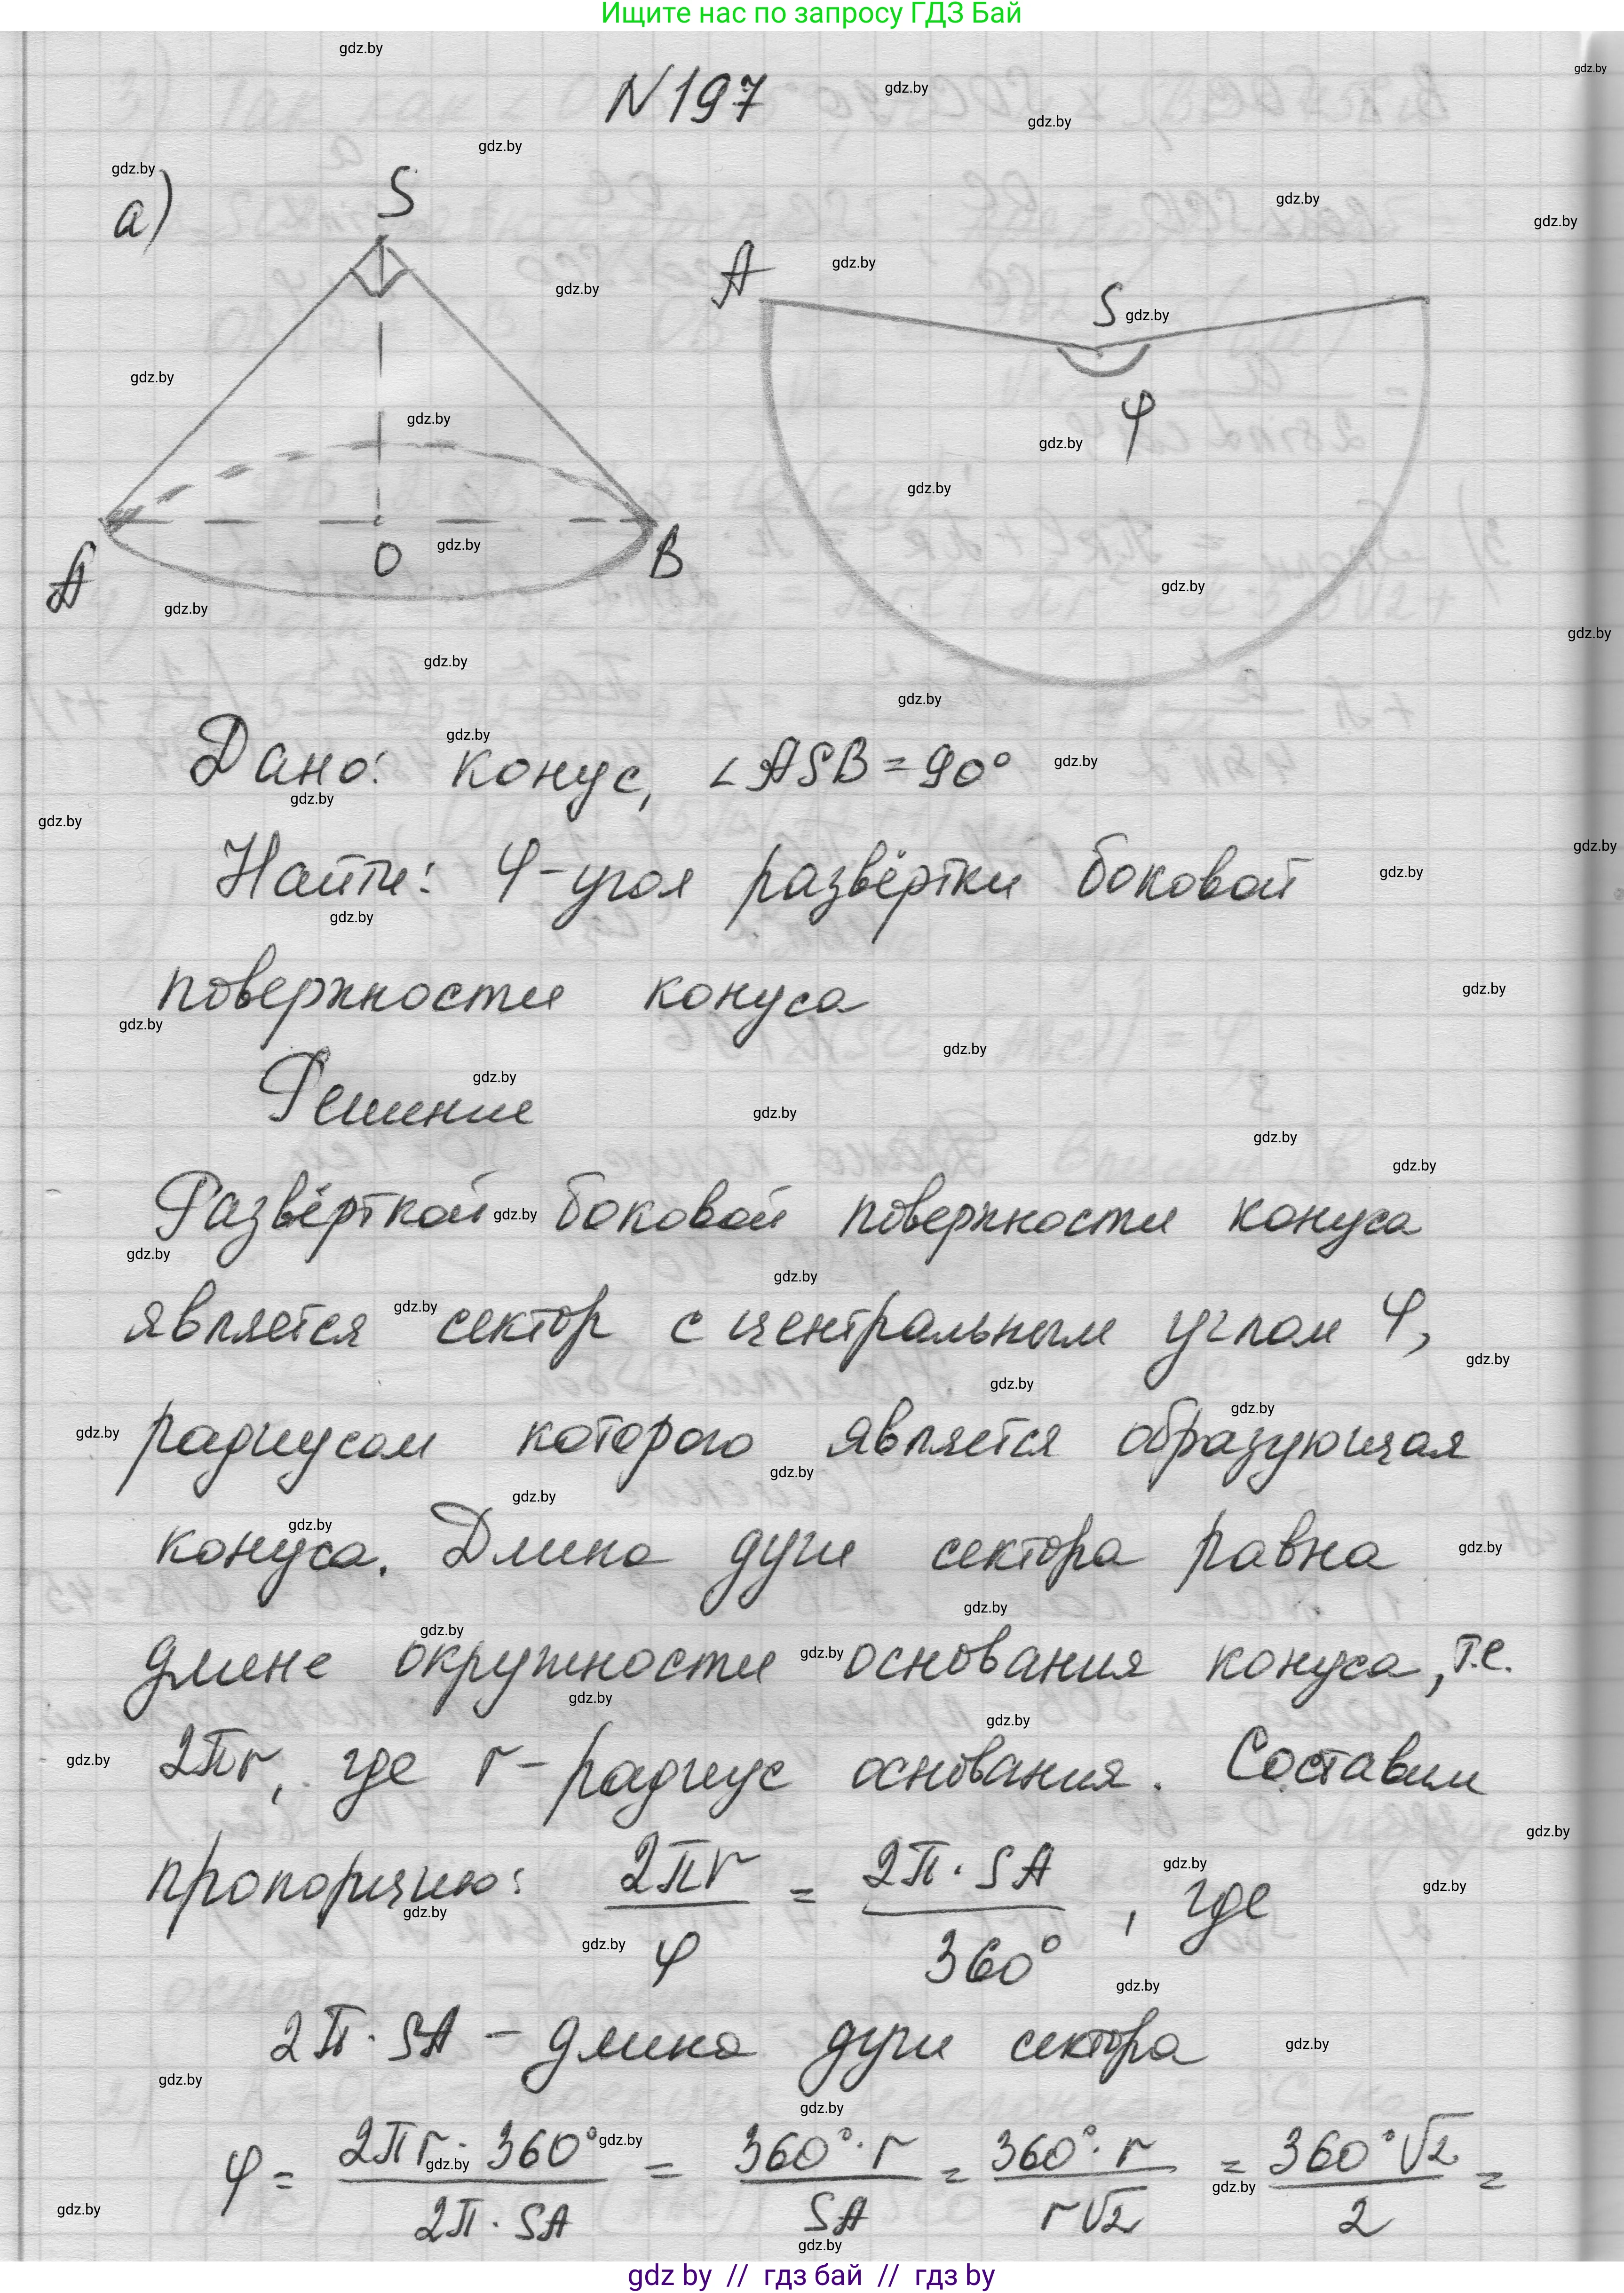 Ищите нас по запросу ГДЗ Бай
N 197
а)
S
A
O
B
A
S
φ
Дано: конус, ∠ASB = 90°
Найти: φ - угол развёртки боковой
поверхности конуса
Решение
Развёрткой боковой поверхности конуса
является сектор с центральным углом φ,
радиусом которого является образующая
конуса. Длина дуги сектора равна
длине окружности основания конуса, т.е.
2πr, где r - радиус основания. Составим
пропорцию: 2πr/φ = 2π · SA/360°, где
2π · SA - длина дуги сектора
φ = 2πr · 360°/2π · SA = 360° · r/SA = 360° · r/r√2 = 360°√2/2 =
gdz by // гдз бай // гдз by